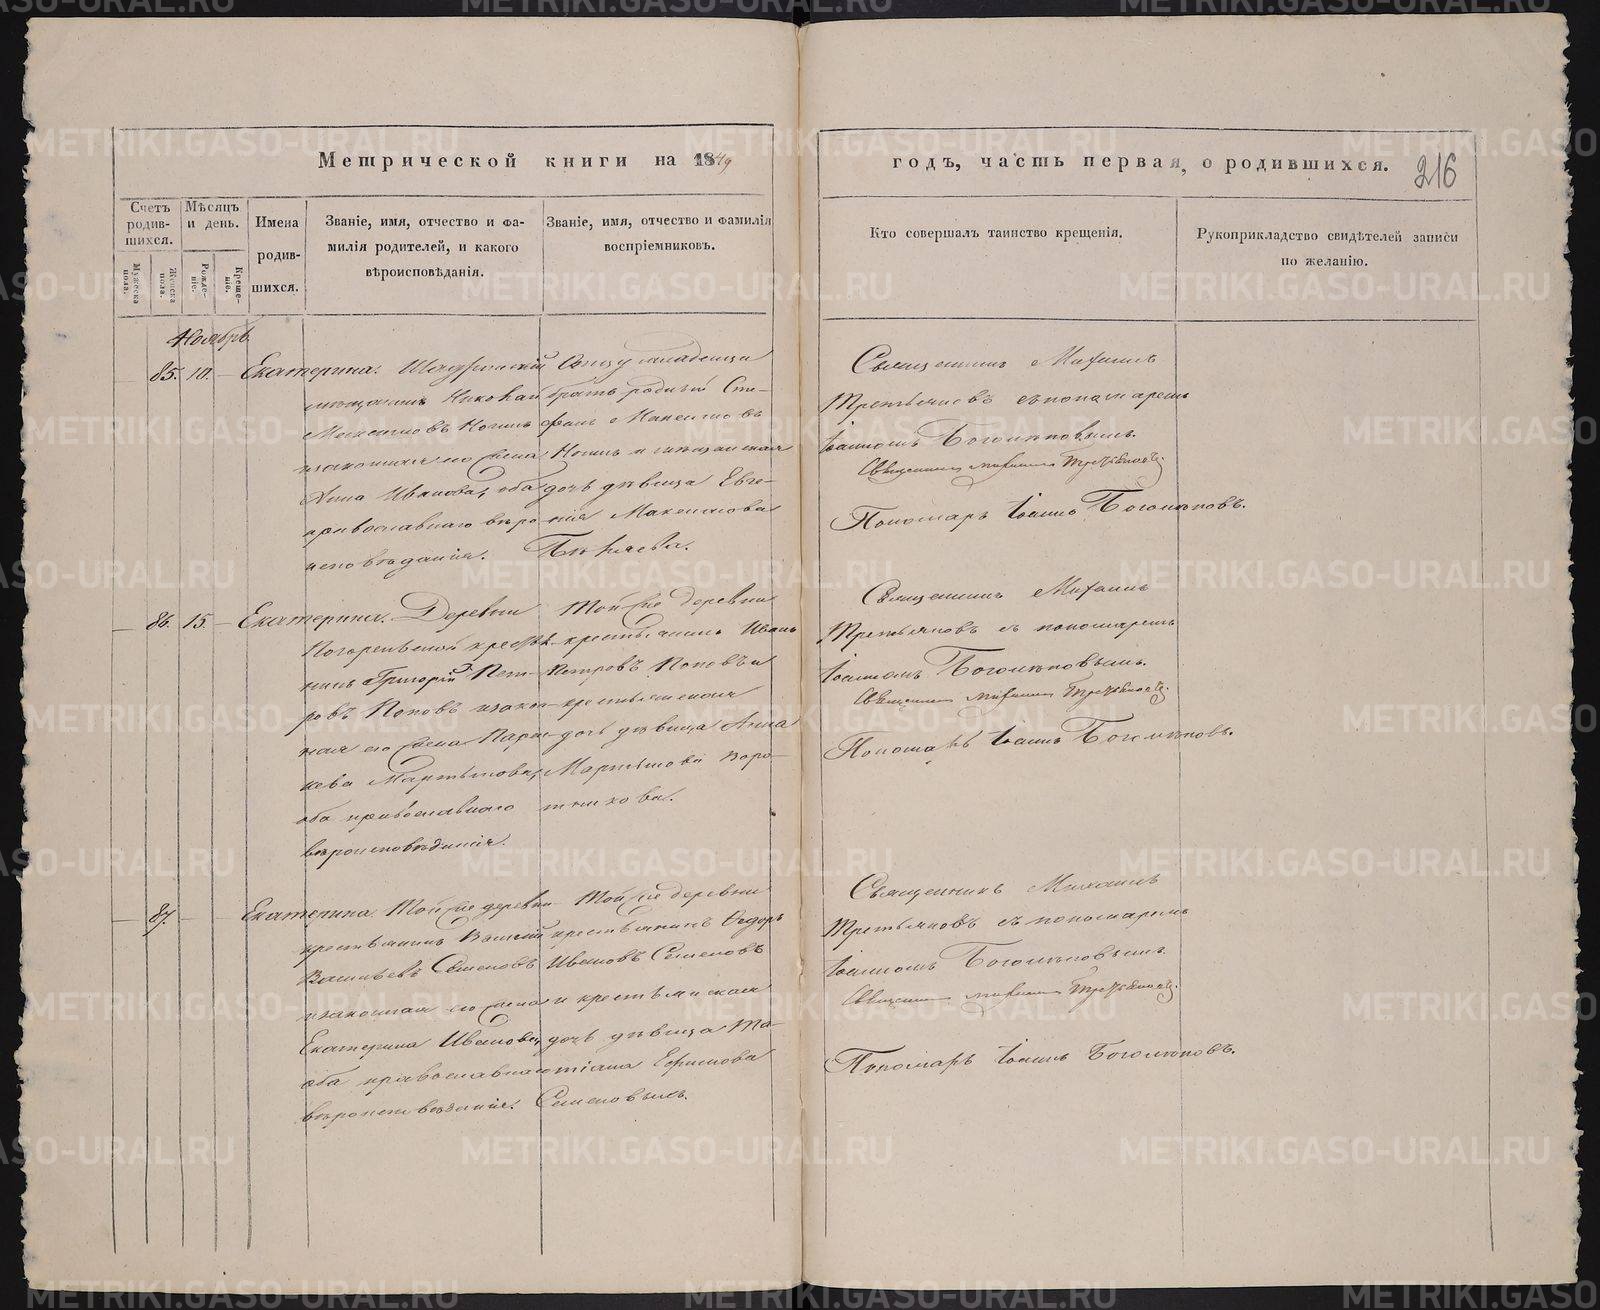 Метрической книги на 1849
годъ, часть первая, о родившихся.
216
Счетъ родив-шихся.
Мѣсяцъ и день.
Имена родив-шихся.
Званіе, имя, отчество и фа-
милія родителей, и какого
вѣроисповѣданія.
Званіе, имя, отчество и фамилія
воспріемниковъ.
Кто совершалъ таинство крещенія.
Рукоприкладство свидѣтелей записи
по желанію.
Мужеска пола.
Женска пола.
Рожде-ніе.
Креще-ніе.
Ноябрь
85. 10. Екатерина.
Шадринскій
мѣщанинъ Николай
Максимовъ
изаконная его жена
Анна Иванова, оба
православнаго вѣро
исповѣданія.
Отцу младенца
братъ родный Сте-
фанъ Максимовъ
и мѣщанская
дочь дѣвица Евге-
нія Максимова
Священникъ Михаилъ
Третьяковъ съ пономаремъ
Іоанномъ Боголѣповымъ.
Священникъ Михаилъ Третьяковъ.
Пономарь Іоаннъ Боголѣповъ.
86. 15. Екатерина.
Деревни
крестья
нинъ Григорій Пет-
ровъ Поповъ изакон
ная его жена Парас
кева Мартынова,
оба православнаго
вѣроисповѣданія.
Той же деревни
крестьянинъ Иванъ
Петровъ Поповъ и
крестьянская
дочь дѣвица Анна
Мартынова Воро-
тникова.
Священникъ Михаилъ
Третьяковъ съ пономаремъ
Іоанномъ Боголѣповымъ.
Священникъ Михаилъ Третьяковъ.
Пономарь Іоаннъ Боголѣповъ.
87. Екатерина.
Той же деревни
крестьянинъ Василій
Васильевъ Семеновъ
изаконная его жена
Екатерина Иванова,
оба православнаго
вѣроисповѣданія.
Той же деревни
крестьянинъ Ѳедоръ
Ивановъ Семеновъ
и крестьянская
дочь дѣвица Та-
тіана Ефимова
Семеновыхъ.
Священникъ Михаилъ
Третьяковъ съ пономаремъ
Іоанномъ Боголѣповымъ.
Священникъ Михаилъ Третьяковъ.
Пономарь Іоаннъ Боголѣповъ.
METRIKI.GASO-URAL.RU